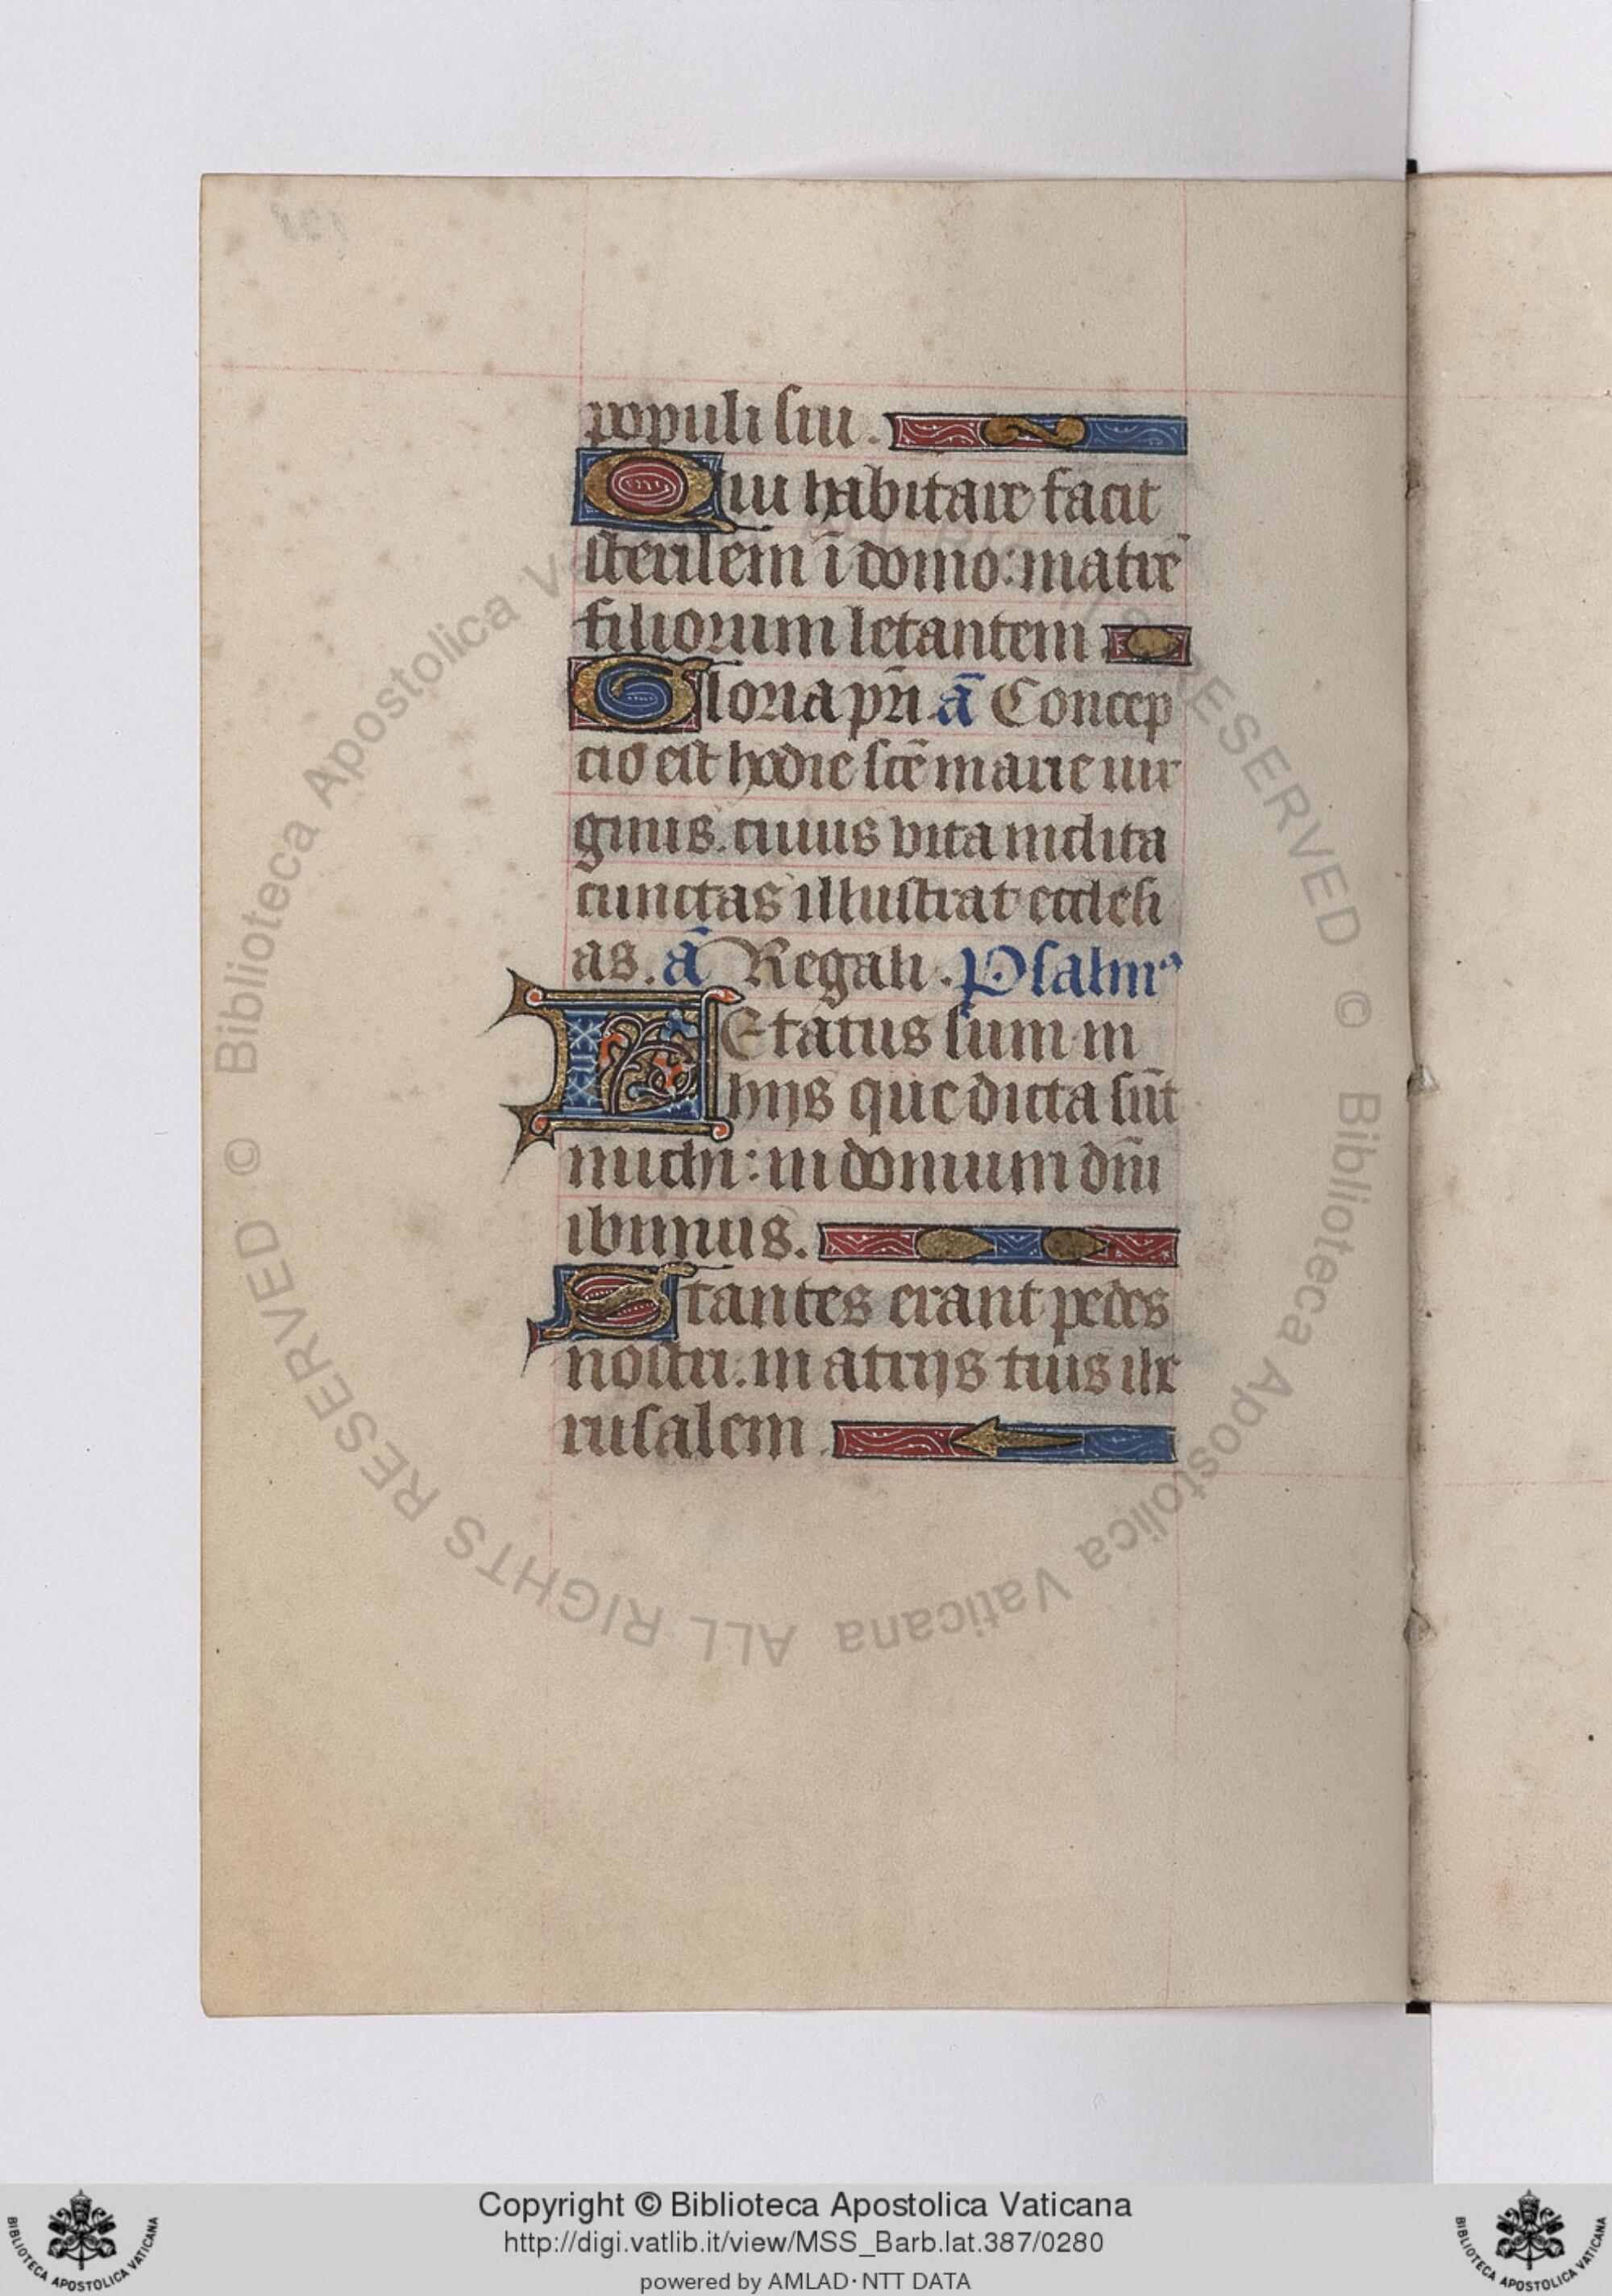 populi sui.
Qui habitare facit
sterilem ī domo: matrē
filiorum letantem
Gloria prī ā Concep
cio est hodie scē marie uir
ginis. cuius vita inclita
cunctas illustrat ecclesi
as. ā Regali. Psalmꝰ
LEtatus sum in
hijs que dicta sūt
michi: in domum dñi
ibimus.
Stantes erant pedes
nostri. in atrijs tuis ihe
rusalem
© Biblioteca Apostolica Vaticana ALL RIGHTS RESERVED
© Biblioteca Apostolica Vaticana ALL RIGHTS RESERVED
Copyright © Biblioteca Apostolica Vaticana
http://digi.vatlib.it/view/MSS_Barb.lat.387/0280
powered by AMLAD·NTT DATA
BIBLIOTECA APOSTOLICA VATICANA
BIBLIOTECA APOSTOLICA VATICANA